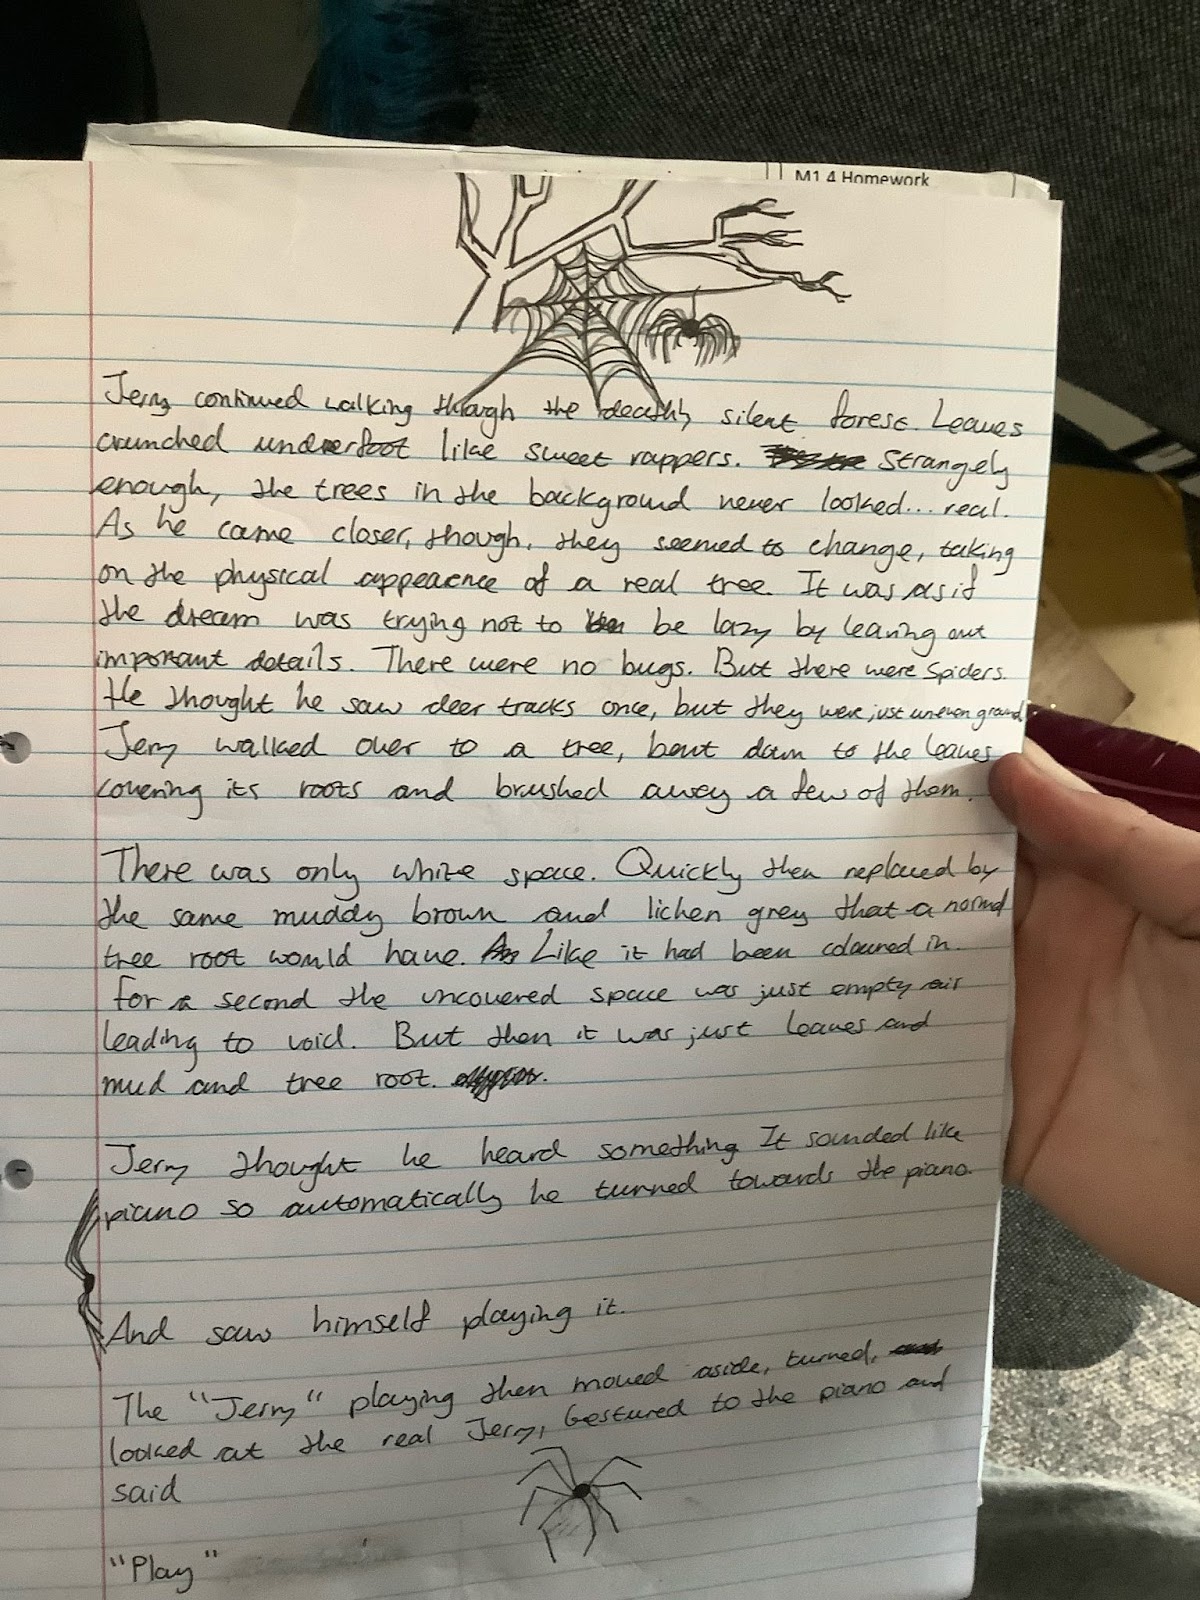 M1.4 Homework
Jerry continued walking though the deathly silent forest. Leaves
crunched underfoot like sweet rappers. Strangely
enough, the trees in the background never looked... real.
As he came closer, though, they seemed to change, taking
on the physical appearence of a real tree. It was as if
the dream was trying not to be lazy by leaving out
important details. There were no bugs. But there were spiders.
He thought he saw deer tracks once, but they were just uneven ground
Jerry walked over to a tree, bent down to the leaves
covering its roots and brushed away a few of them.
There was only white space. Quickly then replaced by
the same muddy brown and lichen grey that a normal
tree root would have. Like it had been coloured in.
for a second the uncovered space was just empty air
leading to void. But then it was just leaves and
mud and tree root.
Jerry thought he heard something It sounded like
piano so automatically he turned towards the piano.
And saw himself playing it.
The "Jerry" playing then moved aside, turned,
looked at the real Jerry, Gestured to the piano and
said
"Play"